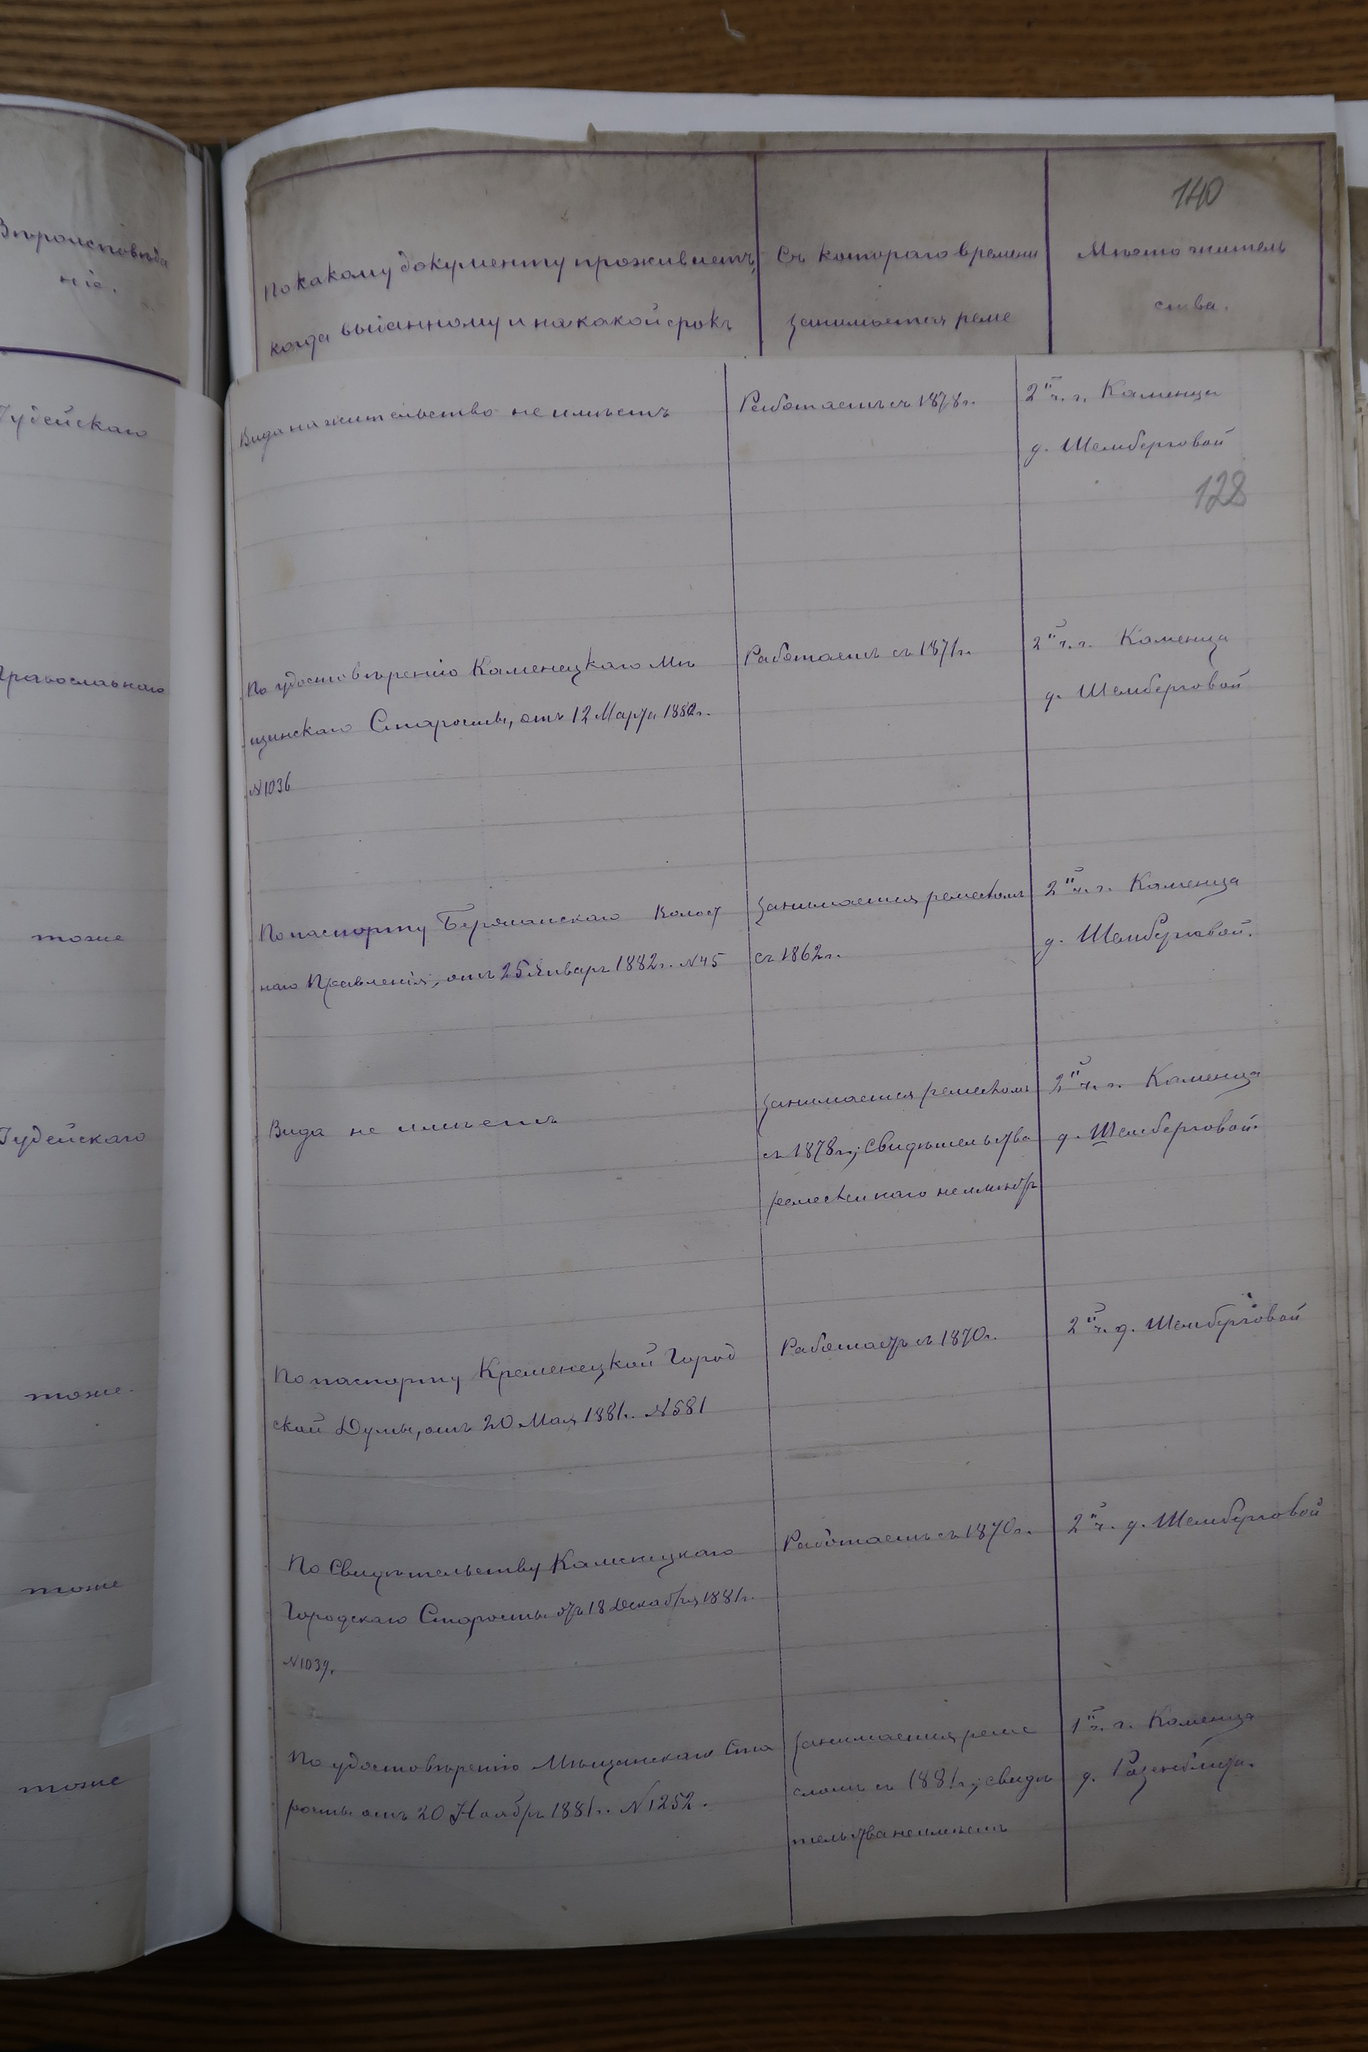 Вѣроисповѣда
ніе.
По какому документу проживаетъ,
когда выданному и на какой срокъ
Съ котораго времени
занимается реме
140
Мѣсто житель
ства.
Іудейскаго
Вида на жительство не имѣетъ
Работаетъ съ 1878 г.
2й ч. г. Каменца
д. Шембёрговой
128
Православнаго
По удостовѣренію Каменецкаго Мѣ
щанскаго Старосты, отъ 12 Марта 1882 г.
№ 1036
Работаетъ съ 1871 г.
2й ч. г. Каменца
д. Шемберговой
тоже
По паспорту Волост
наго Правленія, отъ 25 Января 1882 г. № 45
Занимается ремесломъ
съ 1862 г.
2й ч. г. Каменца
д. Шемберговой.
Іудейскаго
Вида не имѣетъ
Занимается ремесломъ
съ 1878 г.; свидѣтельства
ремесленнаго не имѣетъ
2й ч. г. Каменца
д. Шемберговой.
тоже.
По паспорту Кременецкой Город
ской Думы, отъ 20 Мая 1881 г. № 581
Работаетъ съ 1870 г.
2й ч. д. Шемберговой
тоже
По Свидѣтельству Каменецкаго
Городскаго Старосты отъ 18 Декабря 1881 г.
№ 1039.
Работаетъ съ 1870 г.
2й ч. д. Шемберговой
тоже
По удостовѣренію Мѣщанскаго Ста
росты отъ 20 Ноября 1881 г. № 1252.
Занимается реме
сломъ съ 1881 г.; свидѣ
тельства не имѣетъ
1й ч. г. Каменца
д. Розенблита.